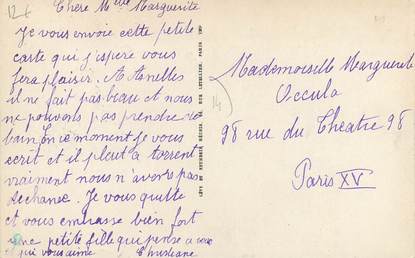 12 €
Chère Mlle Marguerite
Je vous envoie cette petite
carte qui j'ispère vous
fera plaisir. A Asnelles
il ne fait pas beau et nous
ne pouvons pas prendre de
bain. En ce moment Je vous
écrit et il pleut a torrent
vraiment nous n'avons pas
de chance. Je vous quitte
et vous embrasse bien fort
une petite fille qui pense a vous
et qui vous aime Christiane
Mademoiselle Marguerite
Occula
98 rue du Théatre 98
Paris XV
14